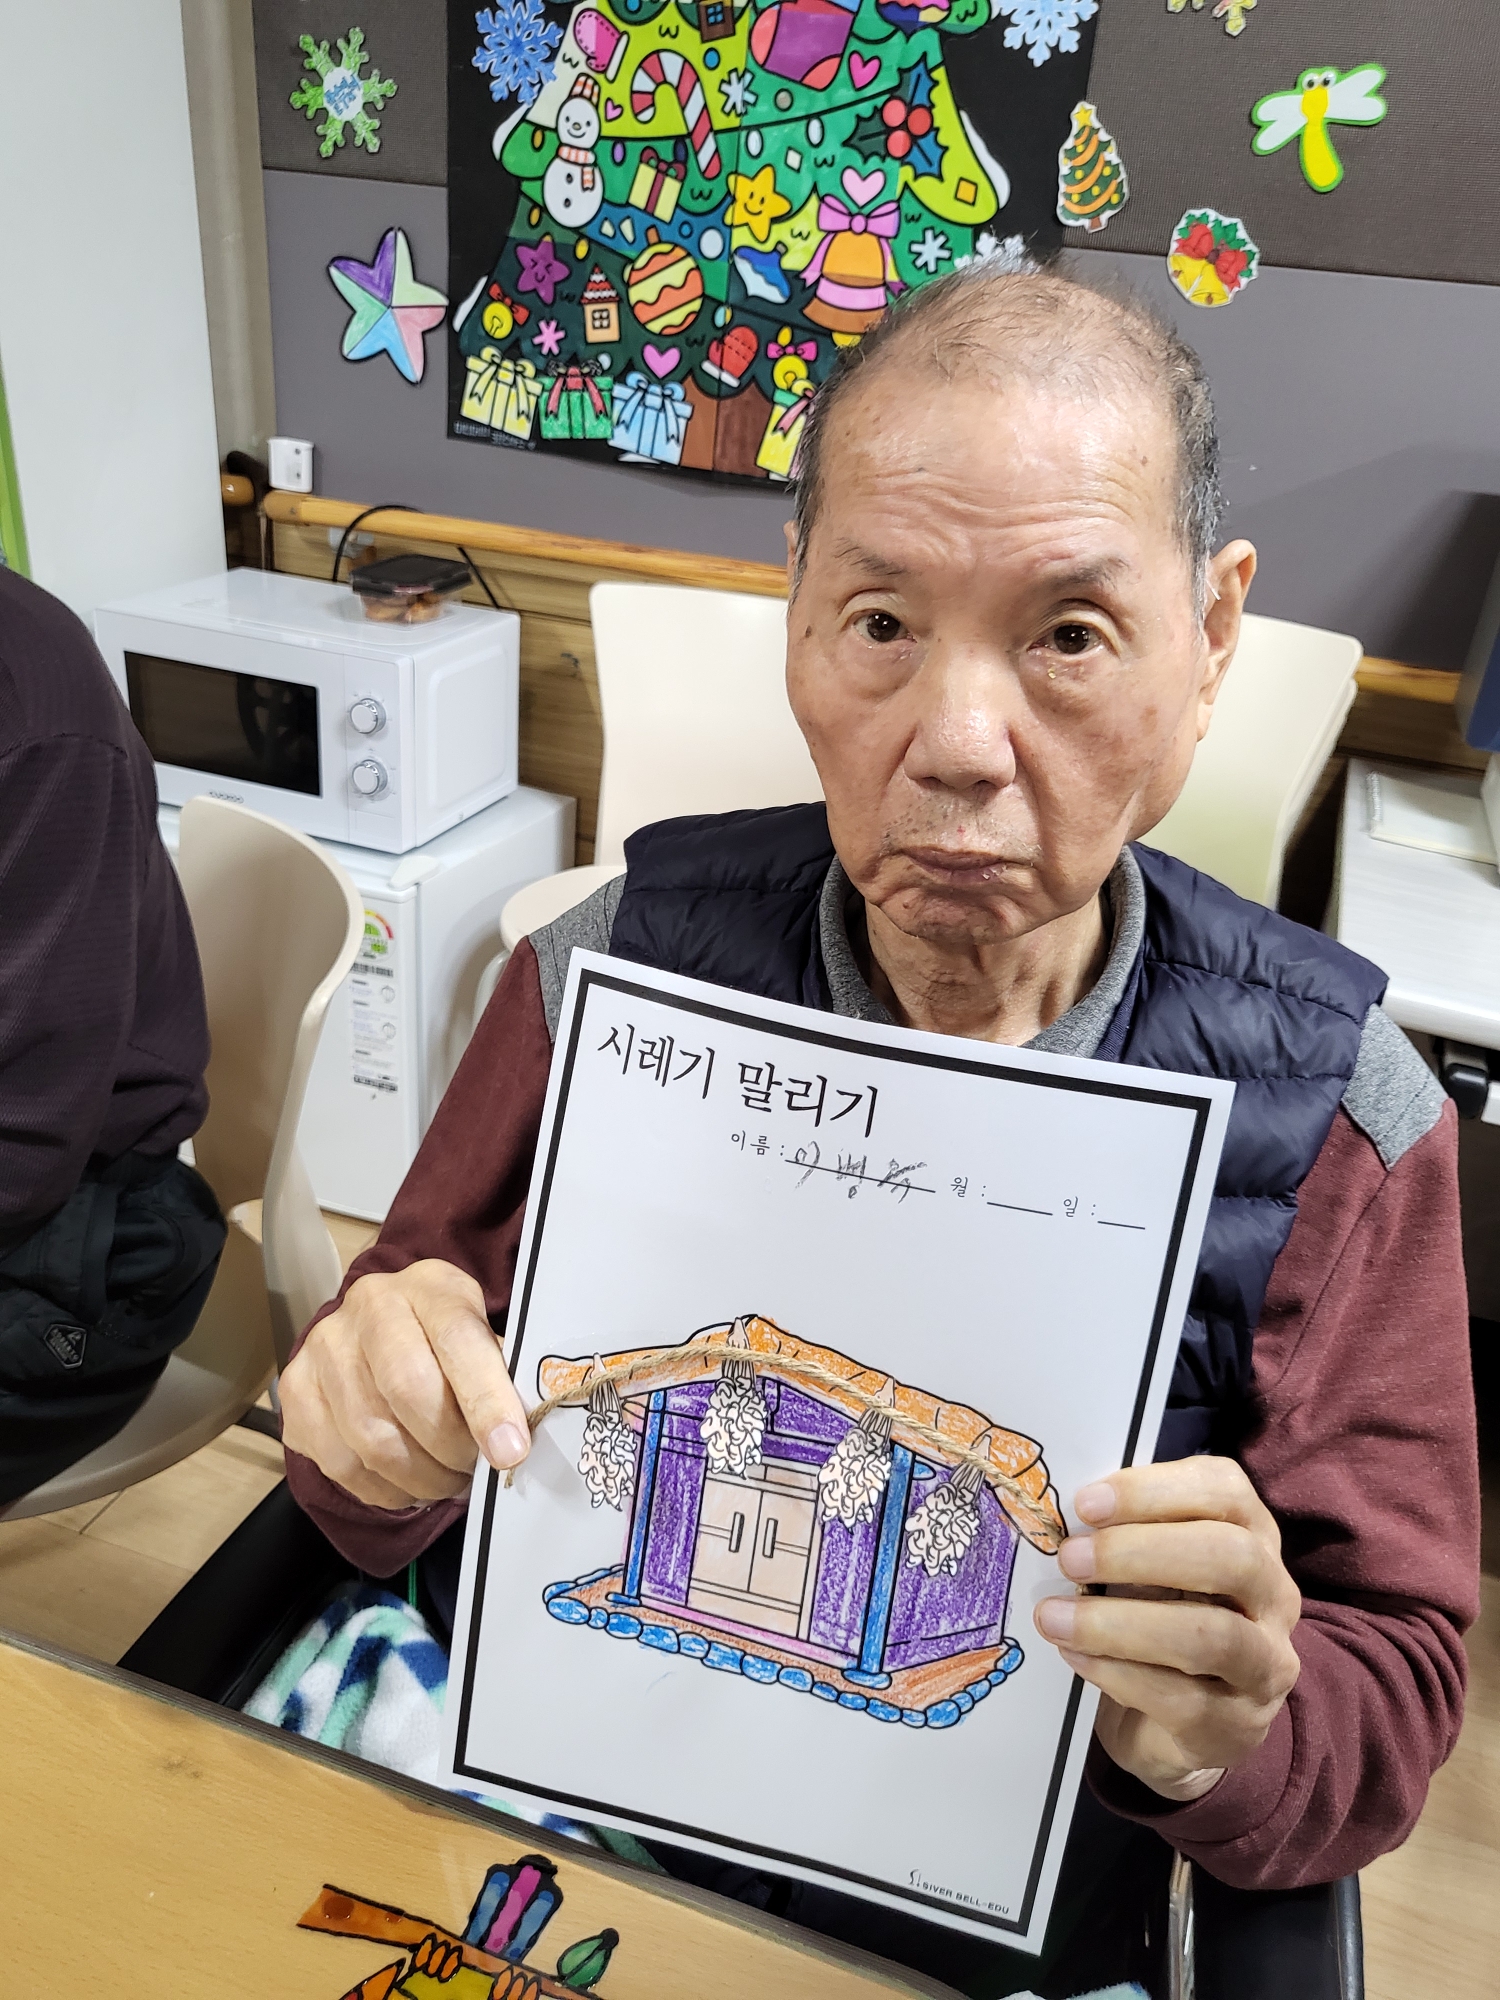 시레기 말리기
이름 : 이병 월 : 일 :
SIVER BELL-EDU